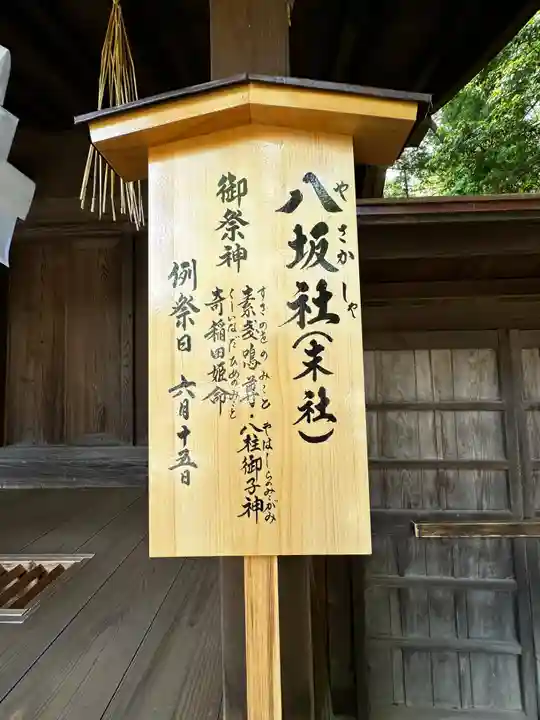 やさかしゃ
八坂社(末社)
御祭神
すさのをのみこと
素戔嗚尊・八柱御子神
やはしらのみこがみ
くしいなだひめのみこと
奇稲田姫命
例祭日 六月十五日